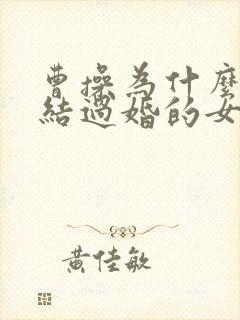 曹操為什麼
結過婚的女
黃佳敏